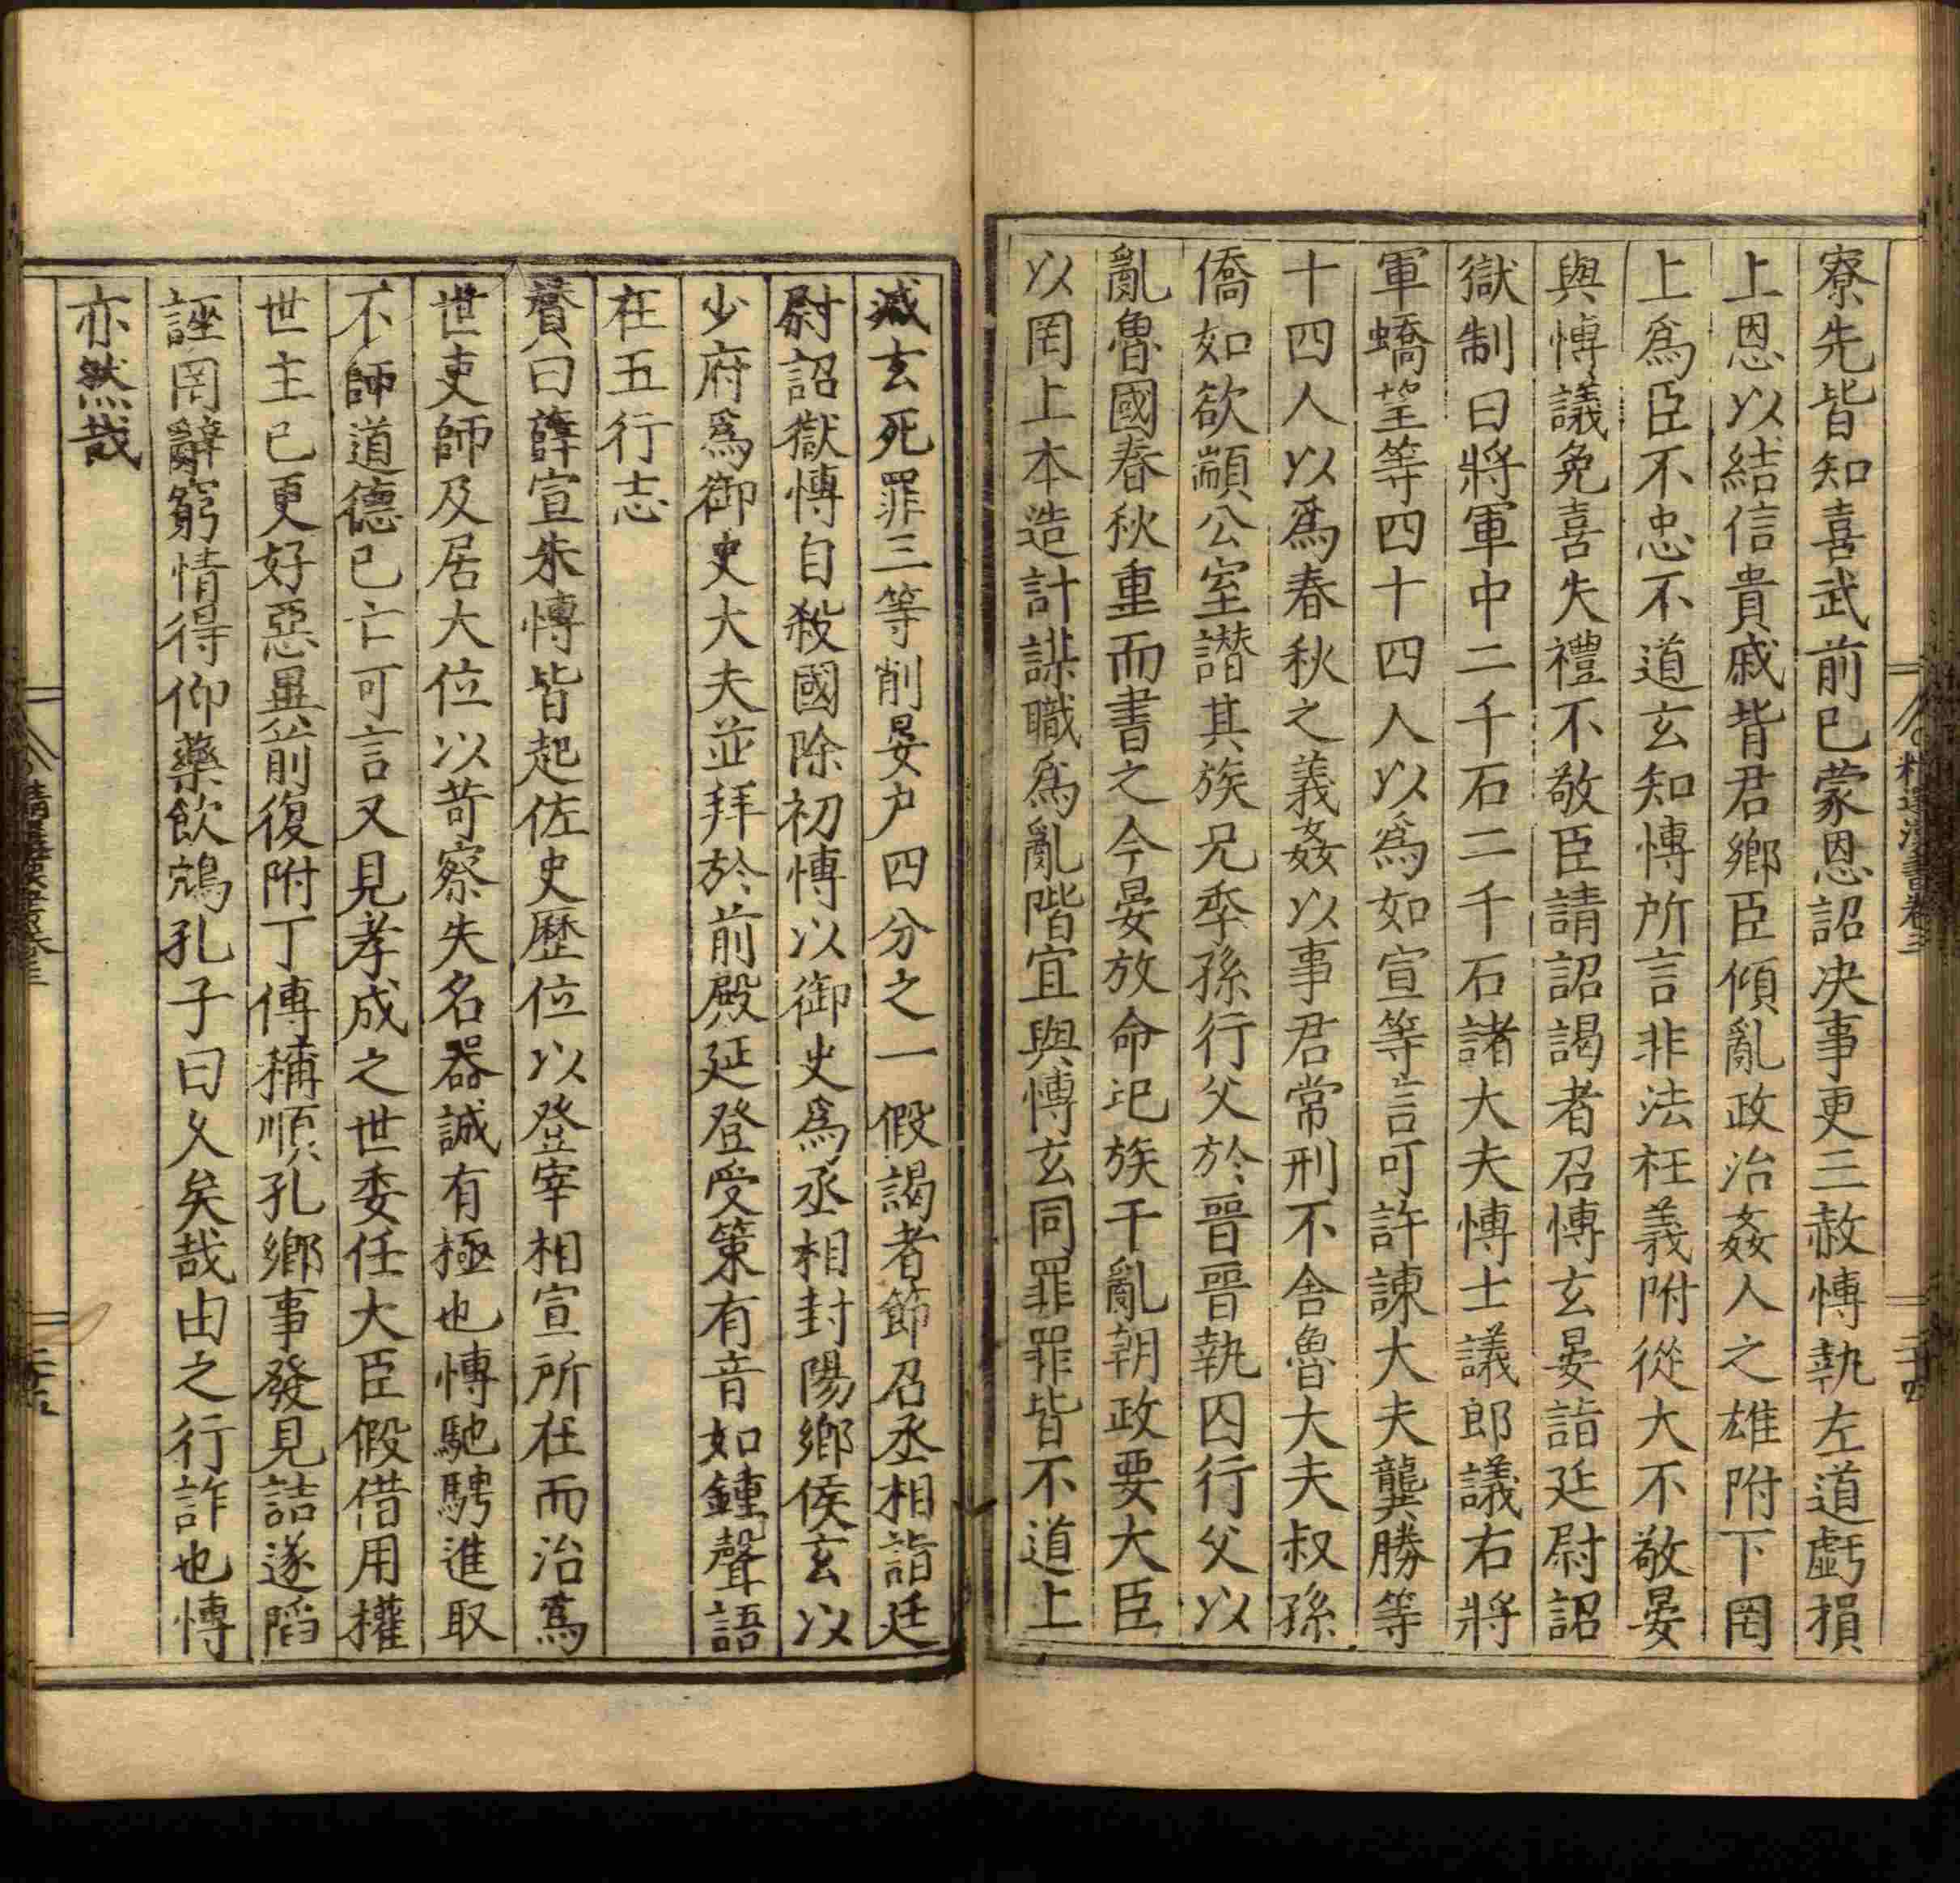 寮先皆知喜武前已蒙恩詔決事更三赦愽執左道虧損
上恩以結信貴戚背君鄉臣傾亂政治姦人之雄附下罔
上爲臣不忠不道玄知愽所言非法枉義附從大不敬晏
與愽議免喜失禮不敬臣請詔謁者召愽玄晏詣廷尉詔
獄制曰將軍中二千石二千石諸大夫愽士議郎議右將
軍蟜望等四十四人以爲如宣等言可許諫大夫龔勝等
十四人以爲春秋之義姦以事君常刑不舍魯大夫叔孫
僑如欲顓公室譖其族兄季孫行父於晉晉執囚行父以
亂魯國春秋重而書之今晏放命圮族干亂朝政要大臣
以罔上本造計謀職爲亂階宜與愽玄同罪罪皆不道上
減玄死罪三等削晏户四分之一假謁者節召丞相詣廷
尉詔獄愽自殺國除初愽以御史爲丞相封陽鄉侯玄以
少府爲御史大夫並拜於前殿延登受策有音如鍾聲語
在五行志
賛曰薛宣朱愽皆起佐史歷位以登宰相宣所在而治爲
世吏師及居大位以苛察失名器誠有極也愽馳騁進取
不師道德已亡可言又見孝成之世委任大臣假借用權
世主已更好惡異前復附丁傅稱順孔鄉事發見詰遂䧟
誣罔辭窮情得仰藥飲鴆孔子曰久矣哉由之行詐也愽
亦然哉
精選漢書卷三
二十四